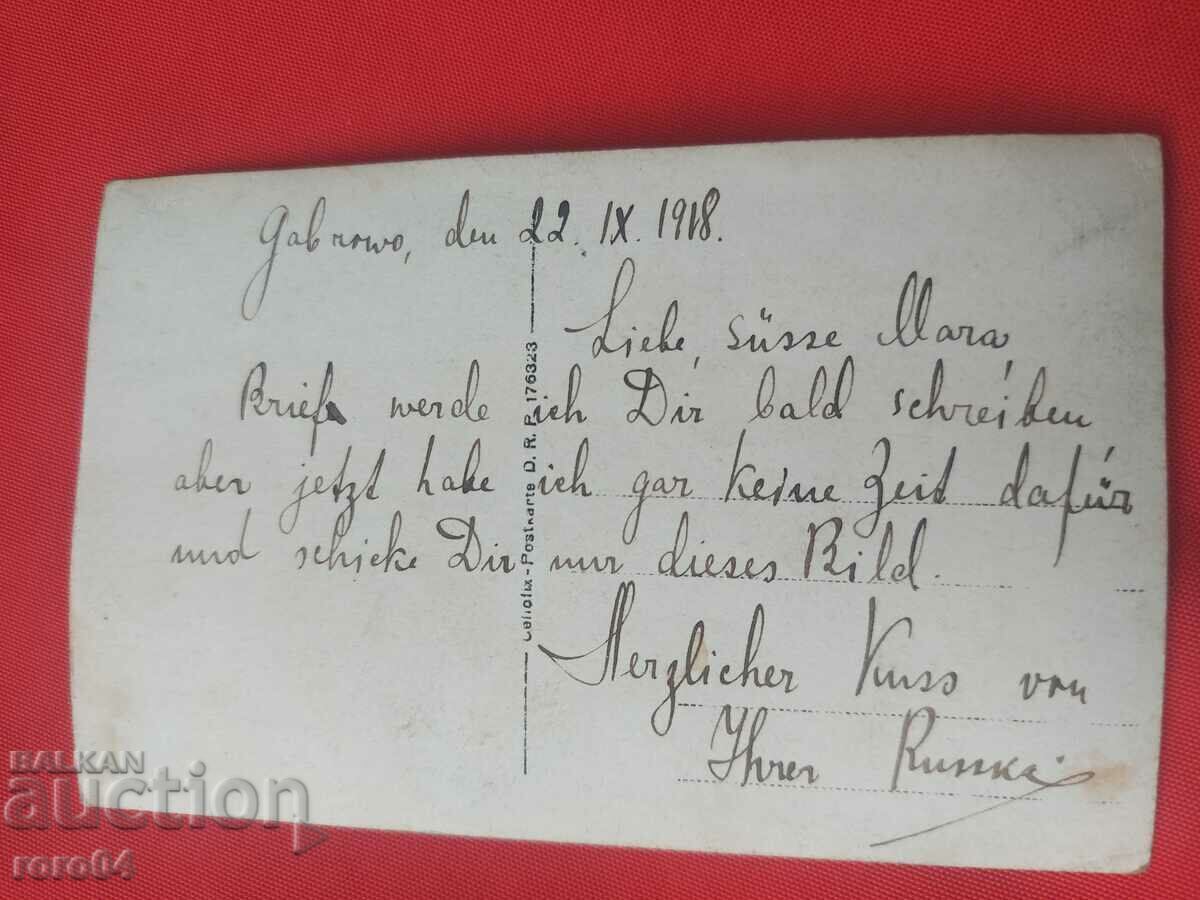 Gabrowo, den 22. IX. 1918.
Liebe, süsse Mara,
Brief werde ich Dir bald schreiben
aber jetzt habe ich gar keine Zeit dafür
und schicke Dir nur dieses Bild.
Herzlicher Kuss von
Ihrer Russka
Cellofix-Postkarte D. R. P. 176323
BALKAN
auction
roro04